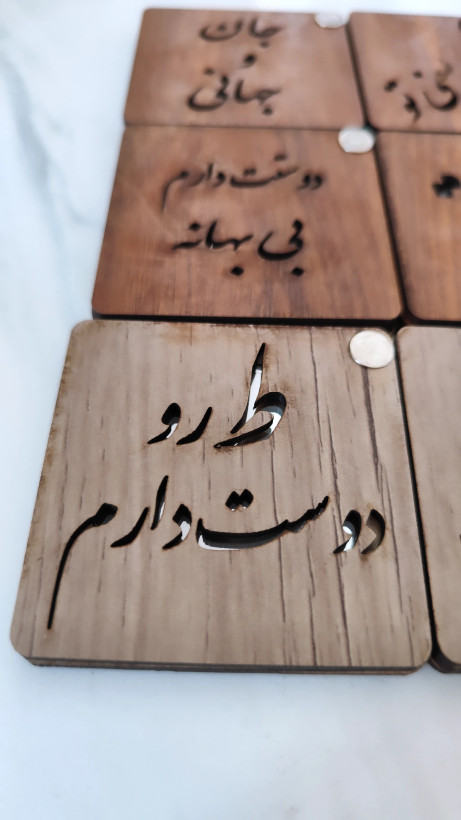 جان
و
جهانی
دوستت دارم
بی بهانه
ط رو
دوست دارم